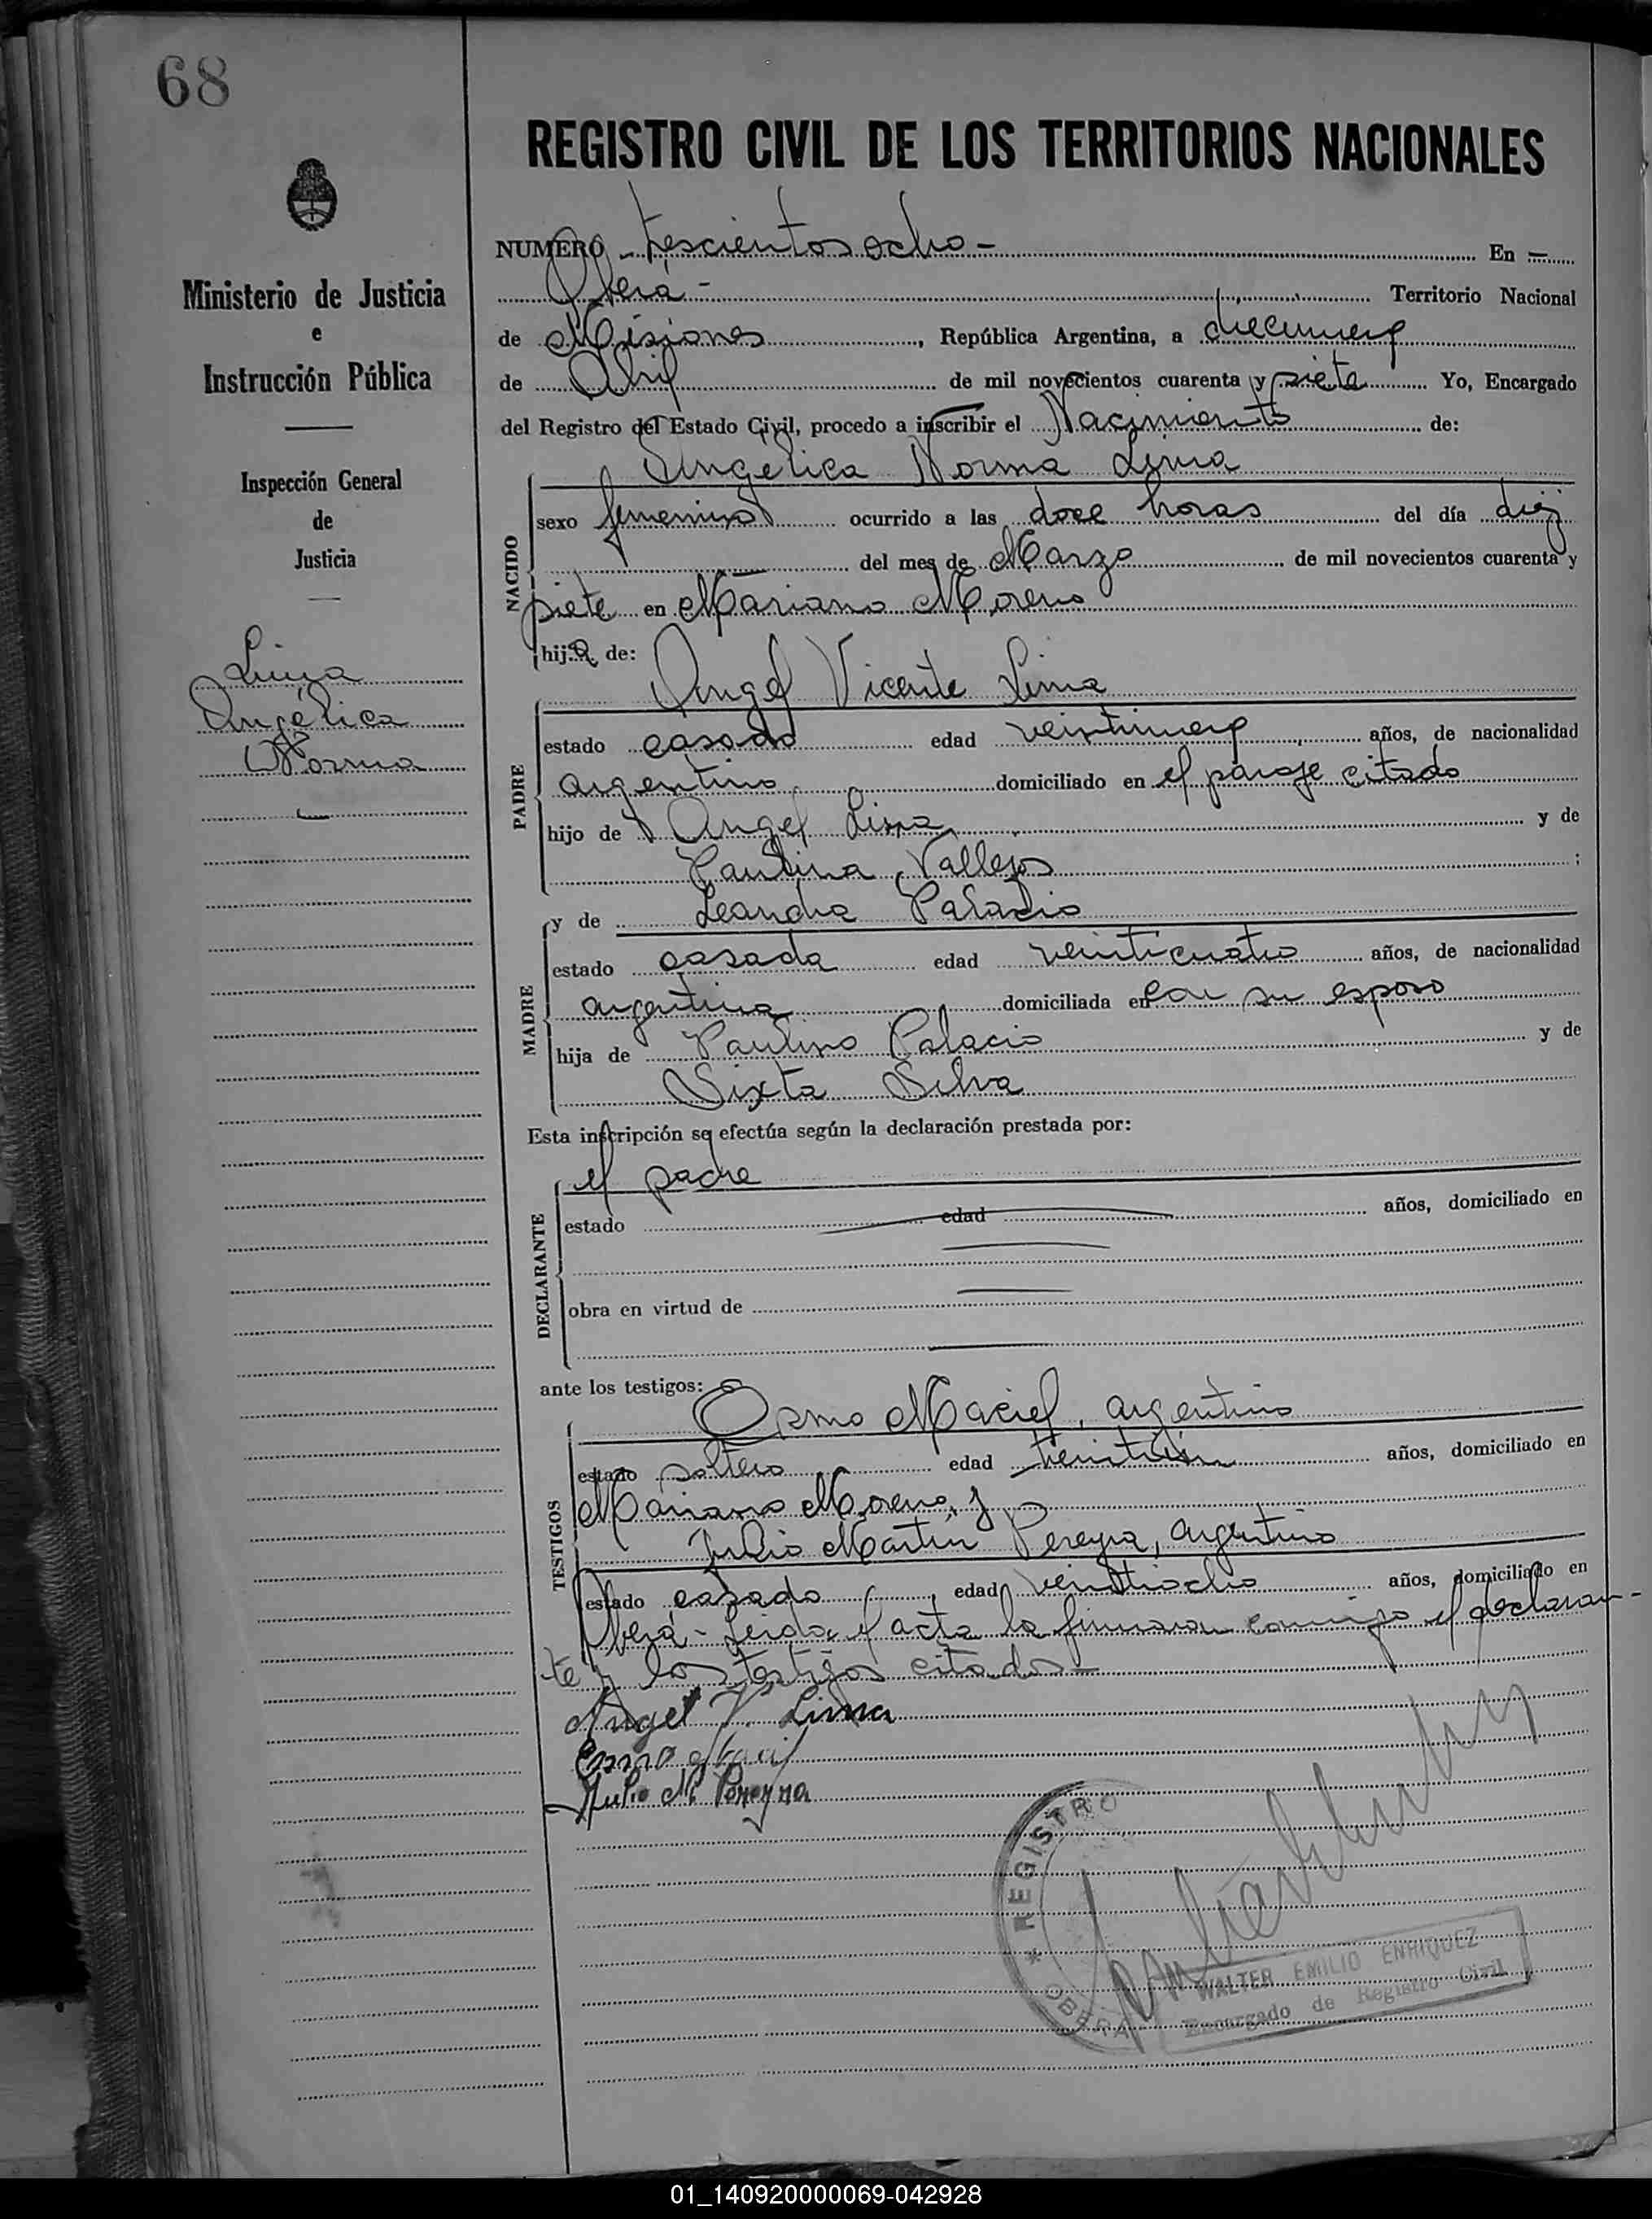 68
REGISTRO CIVIL DE LOS TERRITORIOS NACIONALES
Ministerio de Justicia
e
Instrucción Pública
Inspección General
de
Justicia
Lima
Angélica
Norma
NUMERO - Trescientos ocho - En —
Oberá - Territorio Nacional
de Misiones, República Argentina, a diecinueve
de Abril de mil novecientos cuarenta y siete Yo, Encargado
del Registro del Estado Civil, procedo a inscribir el Nacimiento de:
Angélica Norma Lima
NACIDO
sexo femenino ocurrido a las doce horas del día diez
del mes de Marzo de mil novecientos cuarenta y
siete en Mariano Moreno
hija de:
Angel Vicente Lima
PADRE
estado casado edad veintinueve años, de nacionalidad
argentino domiciliado en el paraje citado
hijo de Angel Lima y de
Paulina Vallejos ;
MADRE
y de Leandra Palacio
estado casada edad veinticuatro años, de nacionalidad
argentina domiciliada en con su esposo
hija de Paulino Palacio y de
Sixta Silva
Esta inscripción se efectúa según la declaración prestada por:
DECLARANTE
el padre
estado edad años, domiciliado en
obra en virtud de
ante los testigos:
TESTIGOS
Maciel, argentino
estado soltero edad años, domiciliado en
Mariano Moreno, y
Julio Martín Pereyra, argentino
estado casado edad veintiocho años, domiciliado en
Oberá - Leida el acta la firmaron conmigo el declaran-
te y los testigos citados -
Angel V. Lima
Julio M. Pereyra
* REGISTRO
OBERA
WALTER EMILIO ENRIQUEZ
Encargado de Registro Civil
01_140920000069-042928